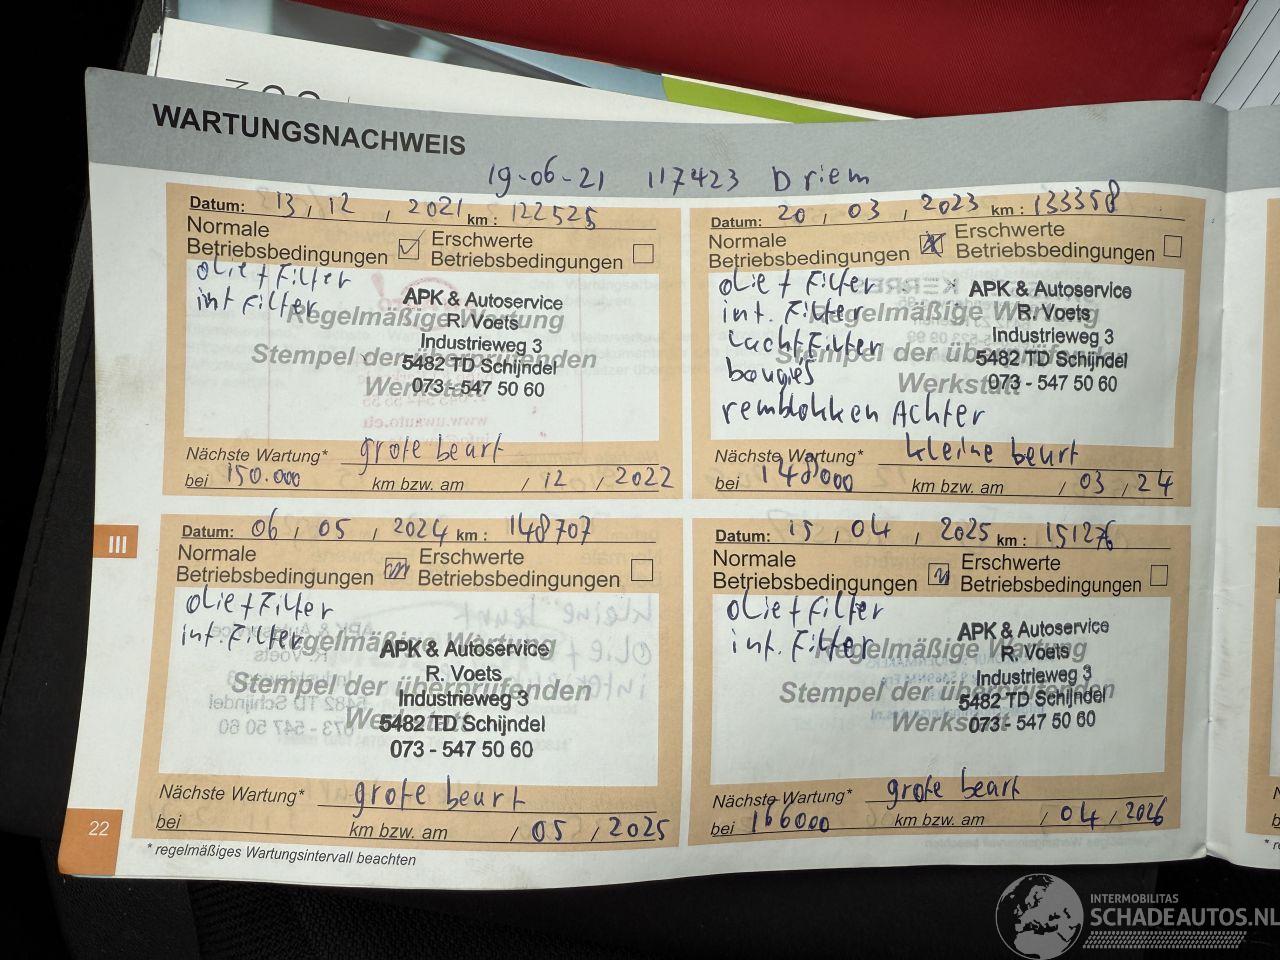 WARTUNGSNACHWEIS
19-06-21 117423 Driem
Datum: 13, 12, 2021 km: 122525
Normale Betriebsbedingungen
Erschwerte Betriebsbedingungen
olie + Filter
int Filter
Regelmäßige Wartung
Stempel der überprüfenden
Werkstatt
APK & Autoservice
R. Voets
Industrieweg 3
5482 TD Schijndel
073 - 547 50 60
Nächste Wartung* grote beurt
bei 150.000 km bzw. am / 12 / 2022
Datum: 20, 03, 2023 km: 133358
Normale Betriebsbedingungen
Erschwerte Betriebsbedingungen
olie + Filter
int. Filter
Lucht Filter
bougies
remblokken Achter
Regelmäßige Wartung
Stempel der überprüfenden
Werkstatt
APK & Autoservice
R. Voets
Industrieweg 3
5482 TD Schijndel
073 - 547 50 60
Nächste Wartung* kleine beurt
bei 148000 km bzw. am / 03 / 24
III
Datum: 06, 05, 2024 km: 148707
Normale Betriebsbedingungen
Erschwerte Betriebsbedingungen
olie + Filter
int. Filter
Regelmäßige Wartung
Stempel der überprüfenden
Werkstatt
APK & Autoservice
R. Voets
Industrieweg 3
5482 TD Schijndel
073 - 547 50 60
Nächste Wartung* grote beurt
bei km bzw. am / 05 / 2025
Datum: 15, 04, 2025 km: 151276
Normale Betriebsbedingungen
Erschwerte Betriebsbedingungen
olie + Filter
int. Filter
Regelmäßige Wartung
Stempel der überprüfenden
Werkstatt
APK & Autoservice
R. Voets
Industrieweg 3
5482 TD Schijndel
073 - 547 50 60
Nächste Wartung* grote beurt
bei 166000 km bzw. am / 04 / 2026
22
* regelmäßiges Wartungsintervall beachten
INTERMOBILITAS
SCHADEAUTOS.NL